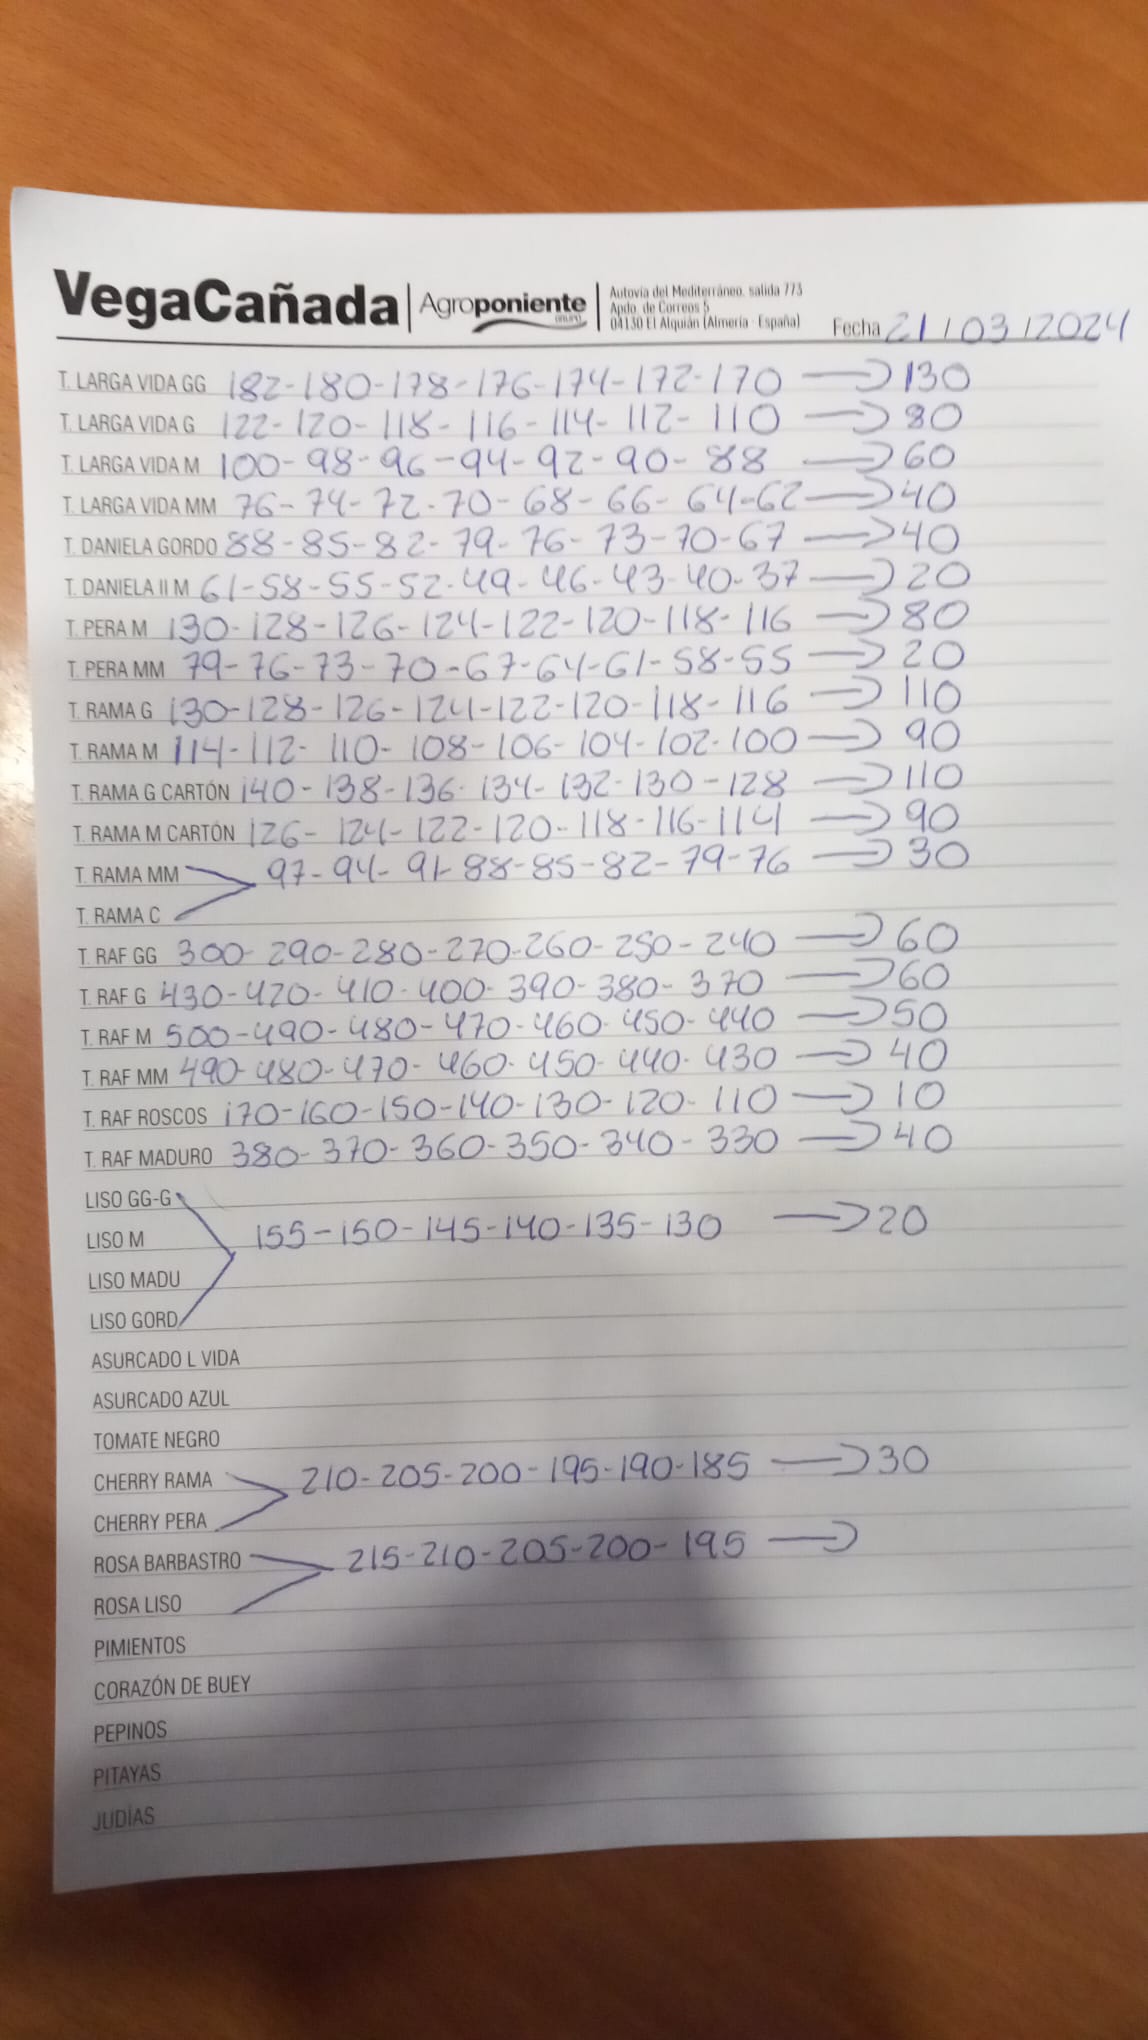 VegaCañada | Agroponiente GRUPO | Autovía del Mediterráneo, salida 773
Apdo. de Correos 5
04130 El Alquián (Almería - España)
Fecha 21/03/2024
T. LARGA VIDA GG 182-180-178-176-174-172-170 → 130
T. LARGA VIDA G 122-120-118-116-114-112-110 → 80
T. LARGA VIDA M 100-98-96-94-92-90-88 → 60
T. LARGA VIDA MM 76-74-72-70-68-66-64-62 → 40
T. DANIELA GORDO 88-85-82-79-76-73-70-67 → 40
T. DANIELA II M 61-58-55-52-49-46-43-40-37 → 20
T. PERA M 130-128-126-124-122-120-118-116 → 80
T. PERA MM 79-76-73-70-67-64-61-58-55 → 20
T. RAMA G 130-128-126-124-122-120-118-116 → 110
T. RAMA M 114-112-110-108-106-104-102-100 → 90
T. RAMA G CARTÓN 140-138-136-134-132-130-128 → 110
T. RAMA M CARTÓN 126-124-122-120-118-116-114 → 90
T. RAMA MM 97-94-91-88-85-82-79-76 → 30
T. RAMA C
T. RAF GG 300-290-280-270-260-250-240 → 60
T. RAF G 430-420-410-400-390-380-370 → 60
T. RAF M 500-490-480-470-460-450-440 → 50
T. RAF MM 490-480-470-460-450-440-430 → 40
T. RAF ROSCOS 170-160-150-140-130-120-110 → 10
T. RAF MADURO 380-370-360-350-340-330 → 40
LISO GG-G
LISO M 155-150-145-140-135-130 → 20
LISO MADU
LISO GORD
ASURCADO L VIDA
ASURCADO AZUL
TOMATE NEGRO
CHERRY RAMA 210-205-200-195-190-185 → 30
CHERRY PERA
ROSA BARBASTRO 215-210-205-200-195 →
ROSA LISO
PIMIENTOS
CORAZÓN DE BUEY
PEPINOS
PITAYAS
JUDÍAS